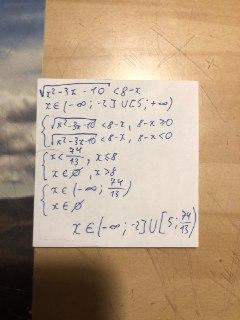 √x²-3x-10 <8-x
x∈(-∞;-2]∪[5;+∞)
{√x²-3x-10 <8-x, 8-x≥0
√x²-3x-10 <8-x, 8-x<0
{x<74/13, x≤8
x∈∅, x>8
{x∈(-∞; 74/13)
x∈∅
x∈(-∞;-2]∪[5; 74/13)